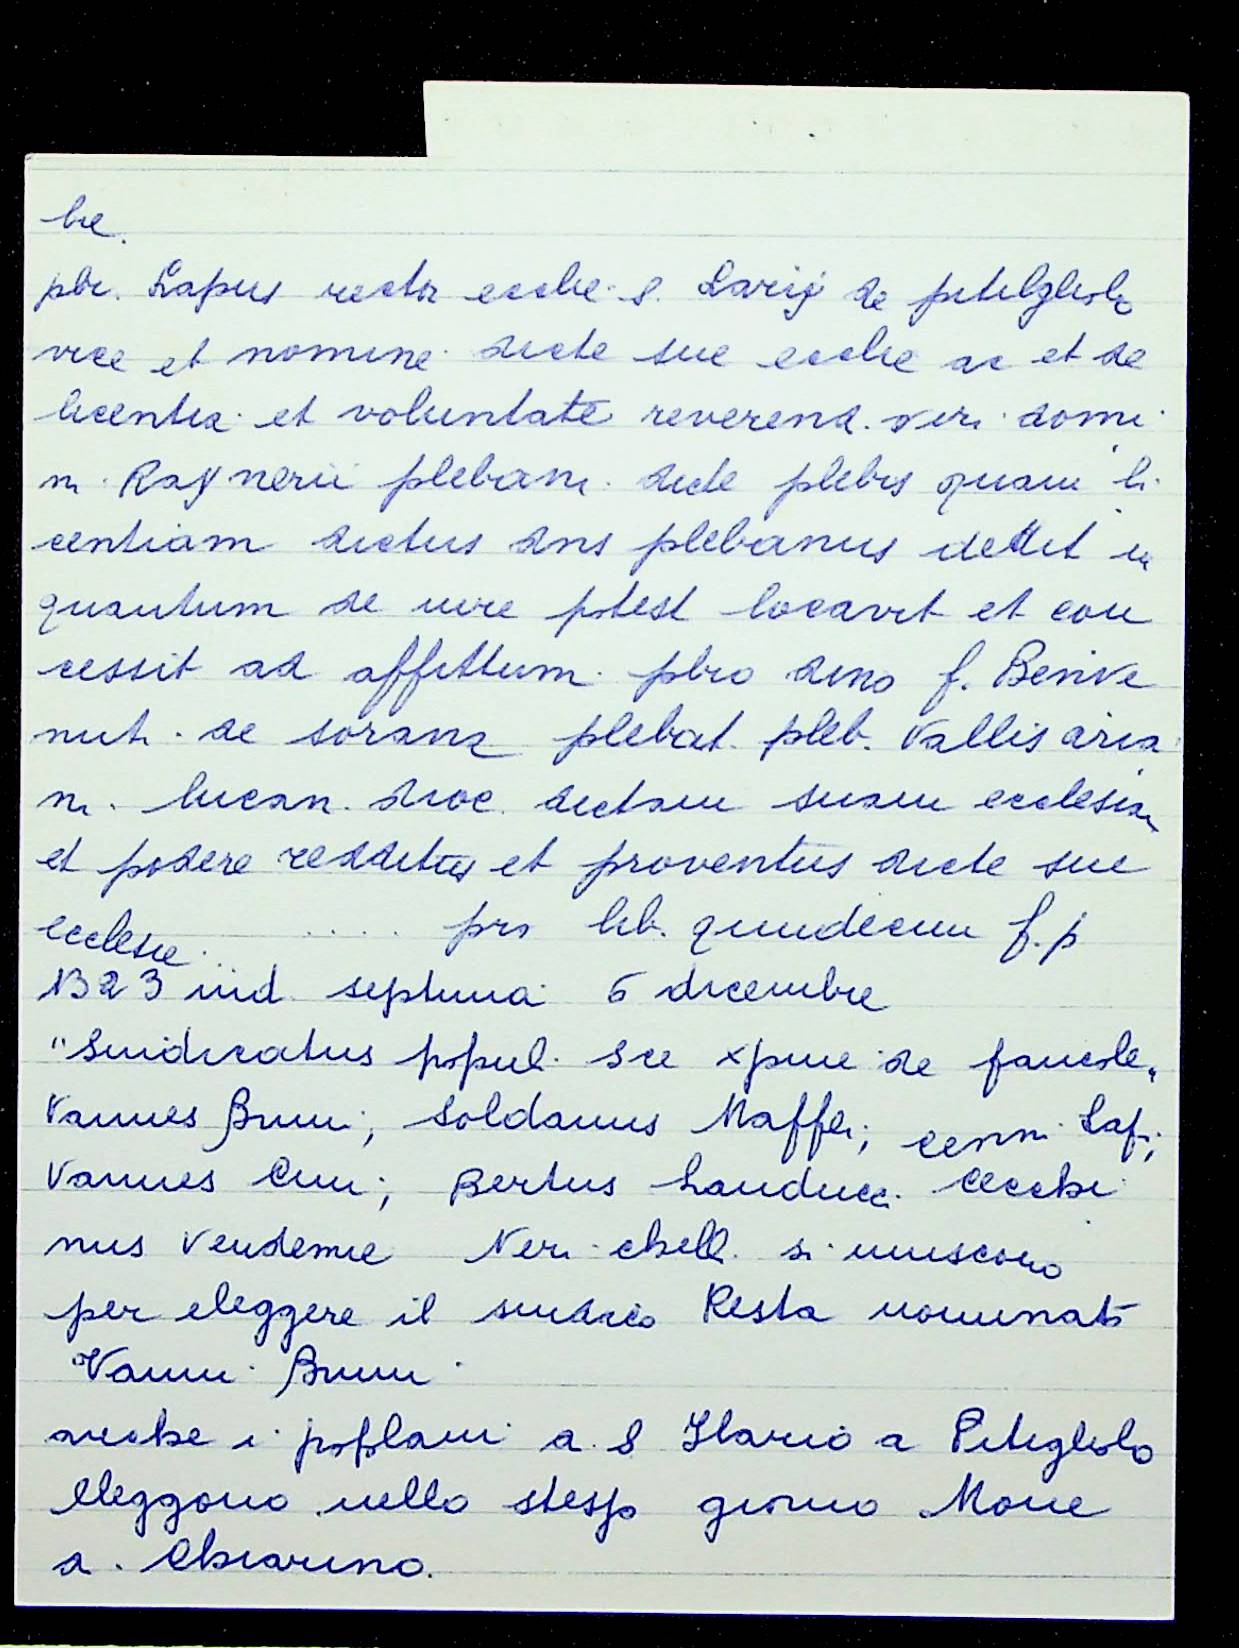 bre.
pbr. Lapus rector eccle. s. Larij de pitilglolo
vice et nomine dicte sue ecclie ac et de
licentia et voluntate reverend. viri domi
ni Raynerii plebani dicte plebis quam li
centiam dictus dns plebanus dedit in
quantum de iure potest locavit et con
cessit ad affittum pbro dino f. Benive
nuti de sorana plebat. pleb. Vallis aria
ni. lucan. dioc. dictam suam ecclesiam
et podere redditus et proventus dicte sue
ecclesie ...... pro lib. quindecim f.p
1323 ind. septima 6 dicembre
"Sindicatus popul. sce xpine de faneole"
Vannes Bruni; Soldanus Maffei; Cenni Lapi;
Vannes Cini; Bertus Landucci Cecchi
nus Vendemie Neri chell. si uniscono
per eleggere il sindico Resta nominato
Vanni Bruni
anche i popolani a S Ilario a Pitiglolo
eleggono nello stesso giorno Mone
a. Chiarino.